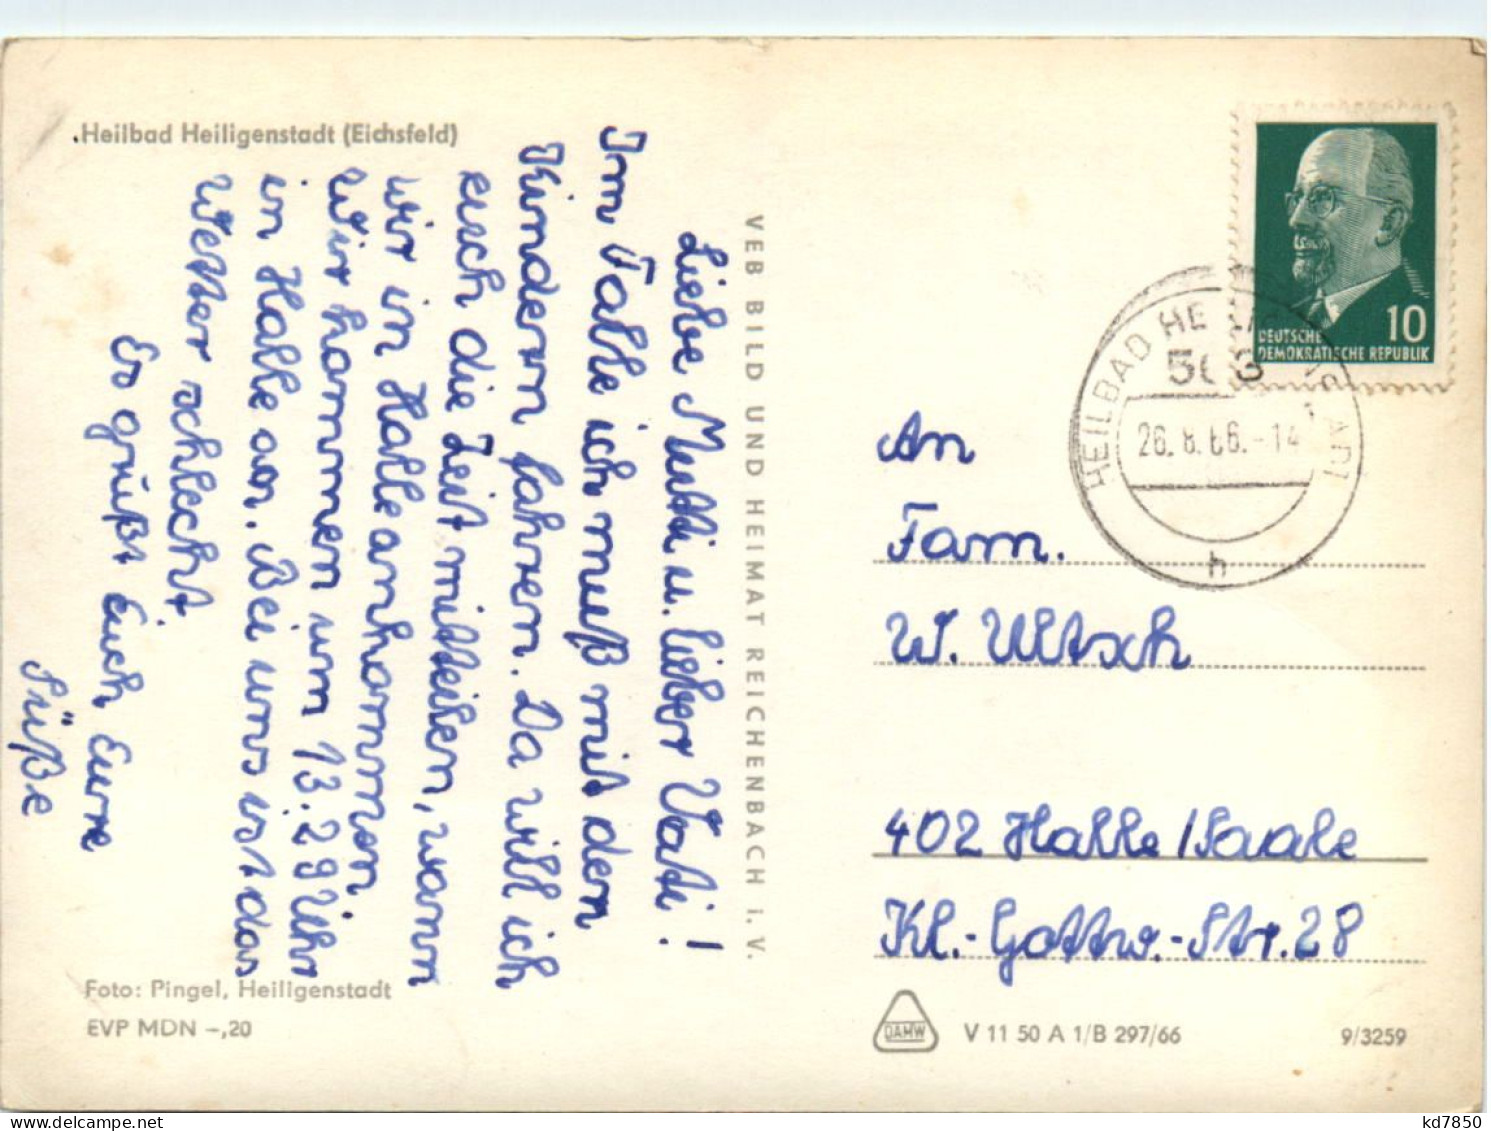 .Heilbad Heiligenstadt (Eichsfeld)
Liebe Mutti u. lieber Vati!
Im Falle ich muß mit den
Kindern fahren. Da will ich
euch die Zeit mitteilen, wann
wir in Halle ankommen
Wir kommen um 13.29 Uhr
in Halle an. Bei uns ist das
Wetter schlecht
Es grüßt Euch Eure
Süße
Foto: Pingel, Heiligenstadt
EVP MDN –,20
VEB BILD UND HEIMAT REICHENBACH i. V.
10
DEUTSCHE
DEMOKRATISCHE REPUBLIK
HEILBAD
26. 8. 66.-14
h
An
Fam.
W. Ultsch
402 Halle / Saale
Kl.-Gottw.-Str. 28
DAMW
V 11 50 A 1/B 297/66
9/3259
kd7850